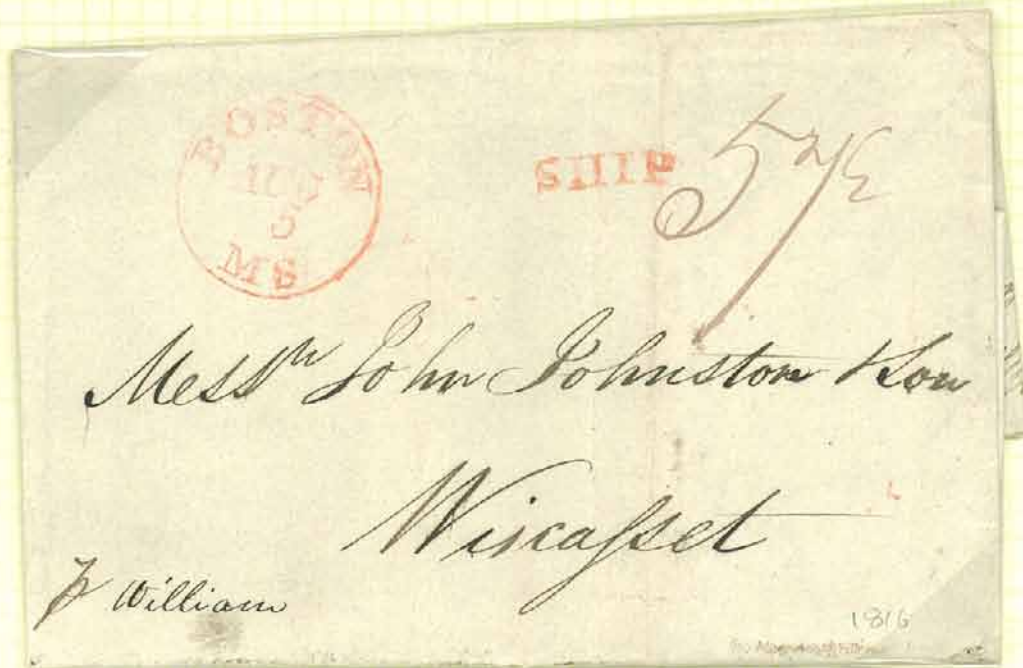 BOSTON
AUG
5
MS
SHIP
Mess<sup>rs</sup> John Johnston & Son
Wiscaſset
p William
1816